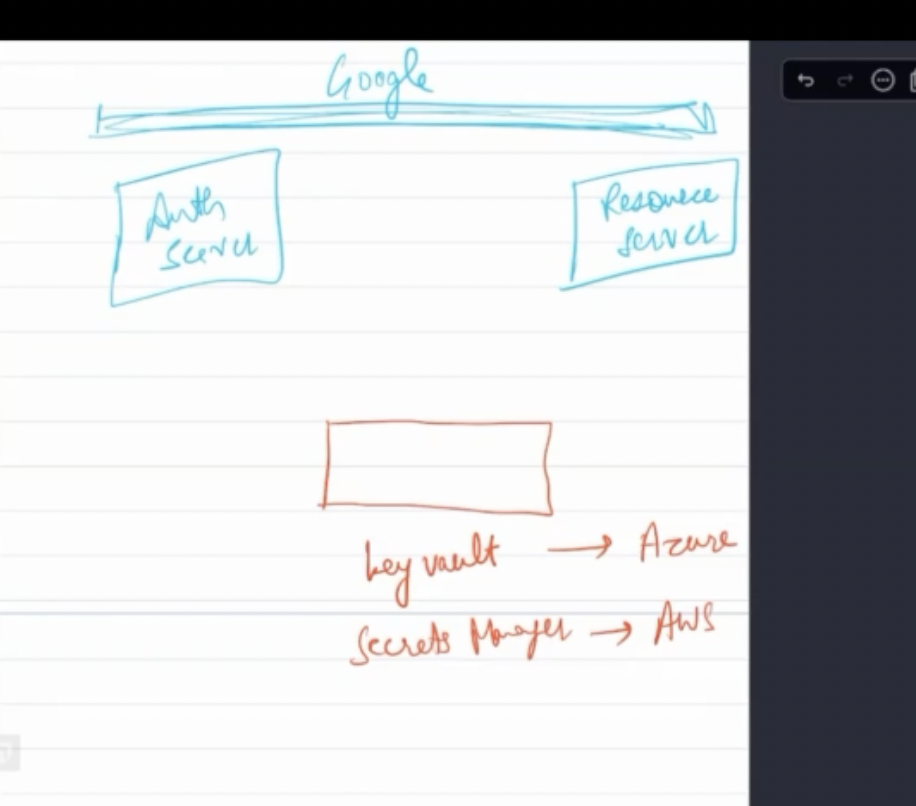 Google
Auth
Server
Resource
Server
key vault → Azure
Secrets Manager → AWS